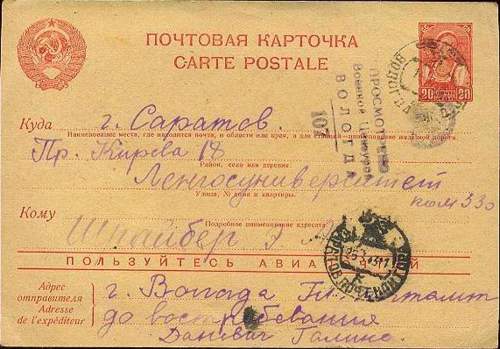 ПОЧТОВАЯ КАРТОЧКА
CARTE POSTALE
20 20
ПРОСМОТРЕНО
Военной Цензурой
ВОЛОГДА
107
Куда г. Саратов.
Наименование места, где находится почта, и области или края, а для станций—наименование железной дороги.
Пр. Кирова 18
Район, село или деревня.
Ленгосуниверситет
Улица, № дома и квартиры.
ком 330
Кому
Подробное наименование адресата
Шнайбер
ПОЛЬЗУЙТЕСЬ
Адрес отправителя
Adresse de l'expéditeur
г. Вологда
до востребования
Галине.